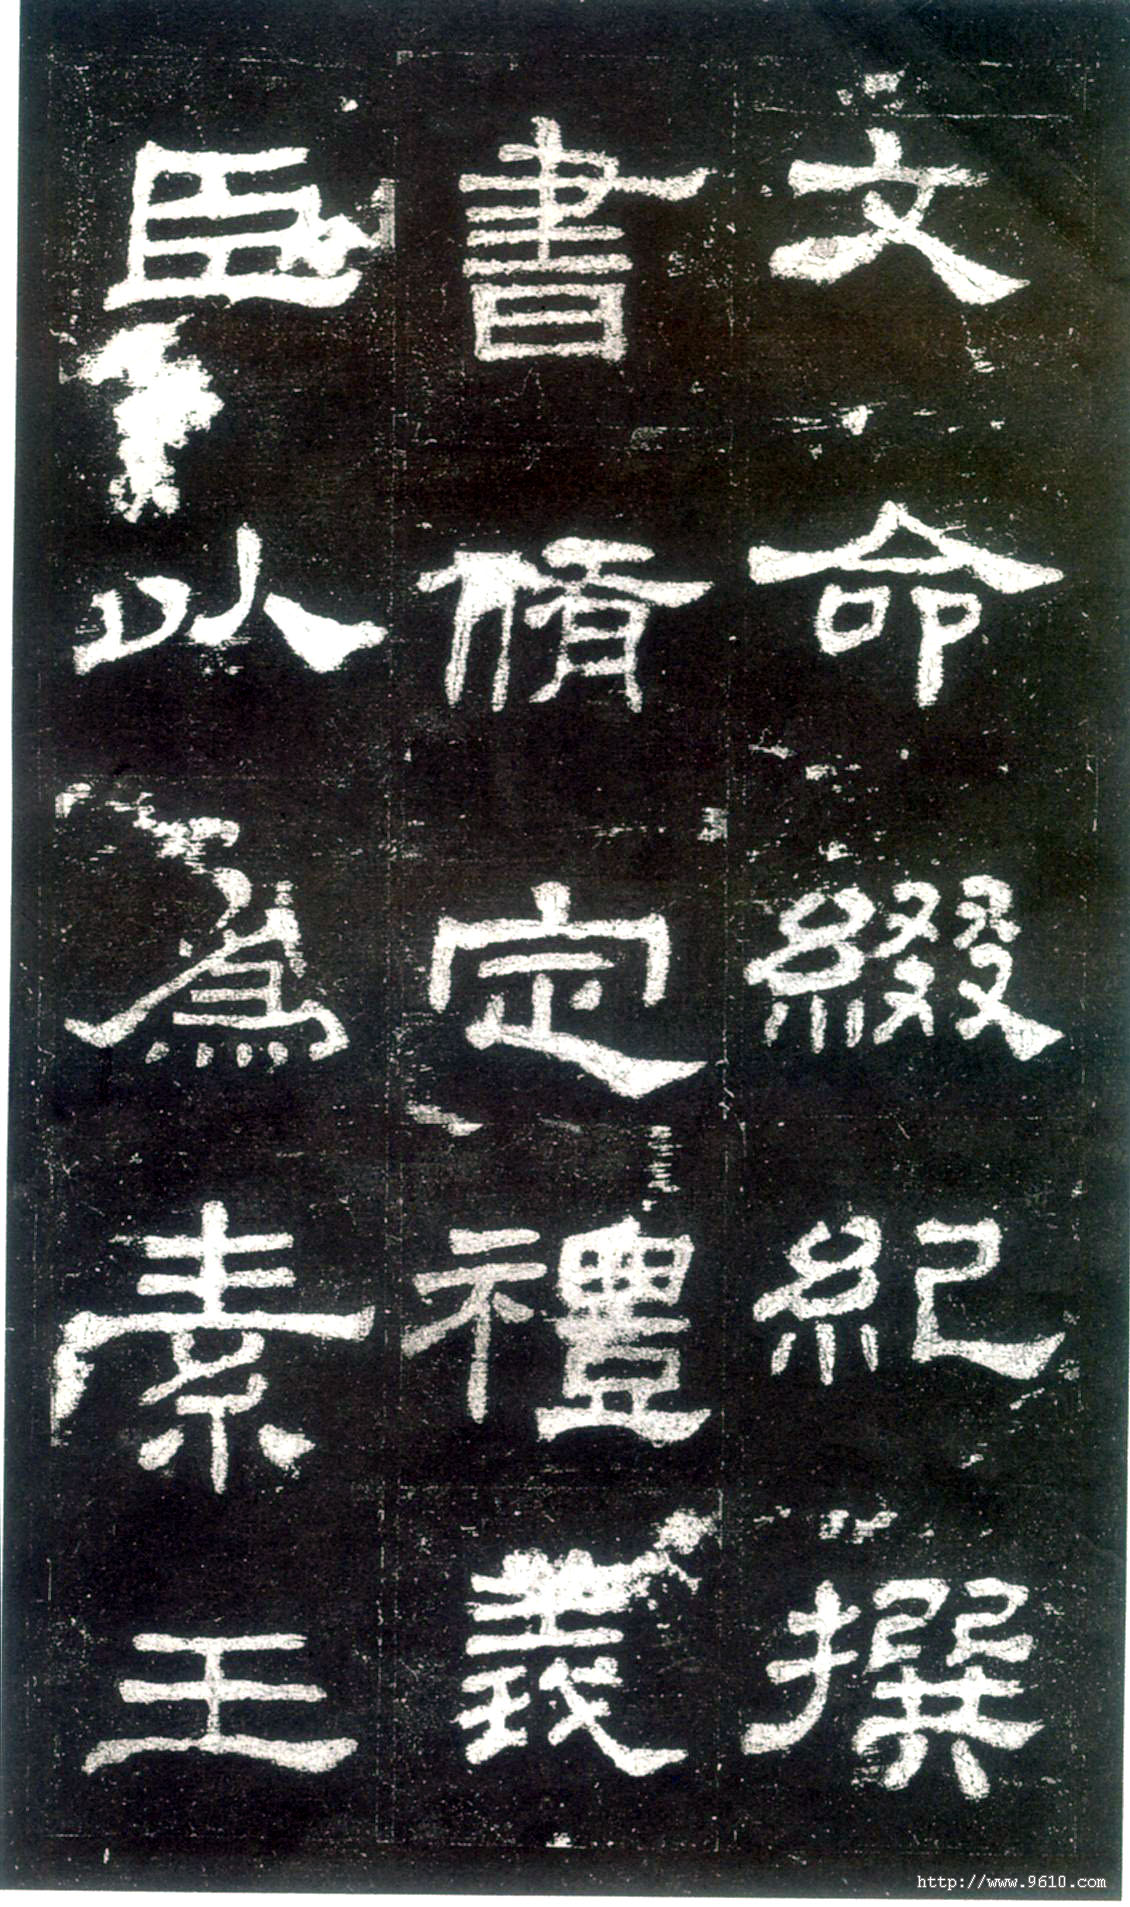 文命綴紀撰
書脩定禮義
臣以為素王
http://www.9610.com